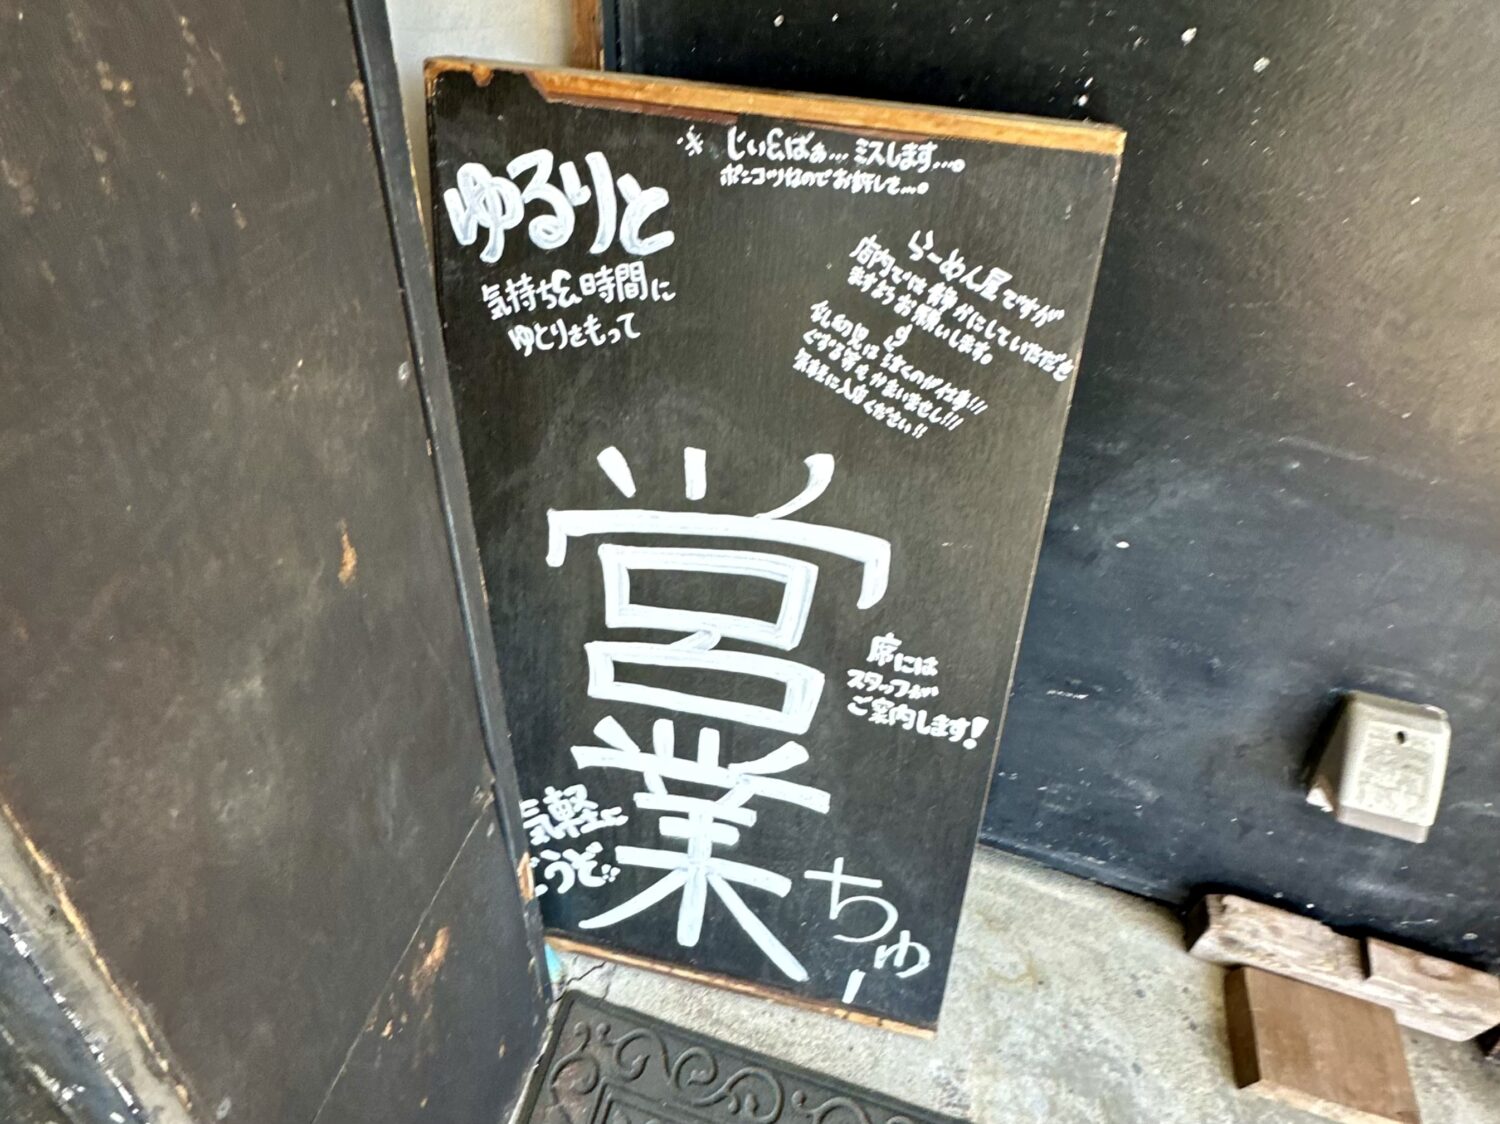 ※ じぃ&ばぁ…ミスします…。
ポンコツなのでお許しを…。
ゆるりと
気持ち&時間に
ゆとりをもって
らーめん屋ですが
店内では静かにしていただき
ますようお願いします。
乳幼児は泣くのが仕事!!!
ぐずる等もかまいません!!!
気軽に入店ください!!
営業
ちゅー
席には
スタッフが
ご案内します!
気軽に
どうぞ!!